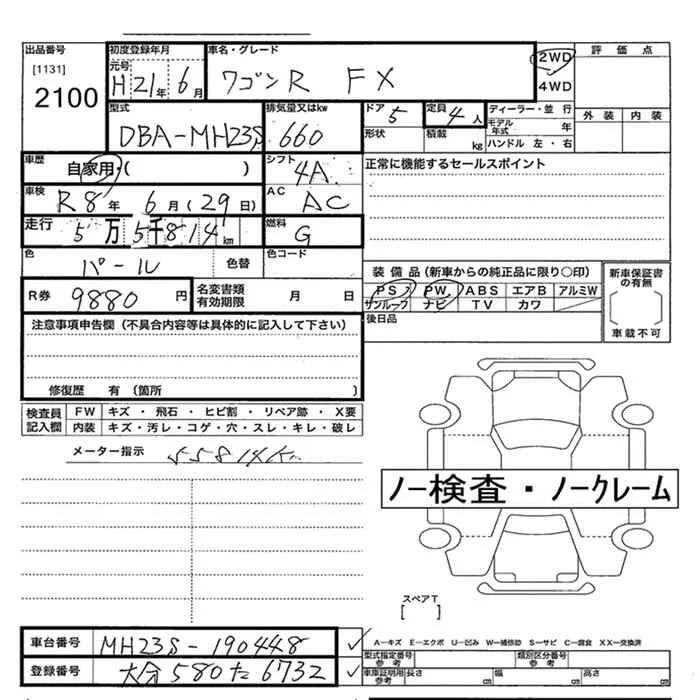 出品番号 初度登録年月 車名・グレード 評価点
[1131] 元号 2WD
2100 H21年 6月 ワゴンR FX 4WD
型式 排気量又はkw ドア 定員 ディーラー・並行 外装 内装
DBA-MH23S 660 5 4人 モデル年式 年
形状 積載 kg ハンドル 左・右
車歴 シフト 正常に機能するセールスポイント
自家用・( ) 4A
車検 AC
R8年 6月(29日) AC
走行 燃料
5万5千814km G
色 色替 色コード
パール 装備品(新車からの純正品に限り○印) 新車保証書の有無
R券 9880円 名変書類有効期限 月 日 PS PW ABS エアB アルミW
サンルーフ ナビ TV カワ
注意事項申告欄(不具合内容等は具体的に記入して下さい) 後日品 車載不可
修復歴 有(箇所 )
検査員記入欄 FW キズ・飛石・ヒビ割・リペア跡・X要
内装 キズ・汚レ・コゲ・穴・スレ・キレ・破レ
メーター指示 55814Km
ノー検査・ノークレーム
スペアT
[ ]
車台番号 MH23S-190448
A−キズ E−エクボ U−凹み W−補修跡 S−サビ C−腐食 XX−交換済
型式指定番号 参考 類別区分番号 参考
登録番号 大分 580 た 6732
車庫証明用 参考 長さ cm 幅 cm 高さ cm